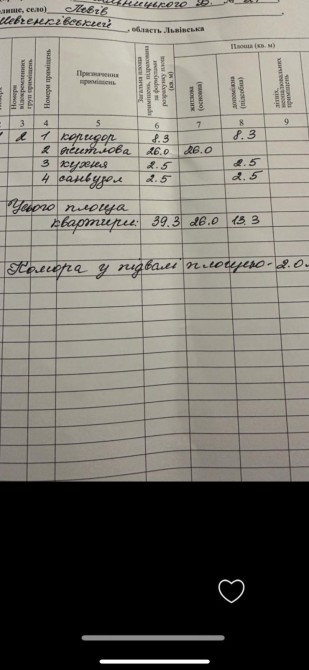 лище, село) Львів
Шевченківський, область Львівська
Номери відокремлених груп приміщень
Номери приміщень
Призначення приміщень
Загальна площа приміщень, підрахована за формулами розрахунку площ (кв. м)
Площа (кв. м)
житлова (основна)
допоміжна (підсобна)
літніх, неопалювальних приміщень
3 4 5 6 7 8 9
2 1 коридор 8.3 8.3
2 житлова 26.0 26.0
3 кухня 2.5 2.5
4 санвузол 2.5 2.5
Усього площа
квартири: 39.3 26.0 13.3
Комора у підвалі площею - 2.0